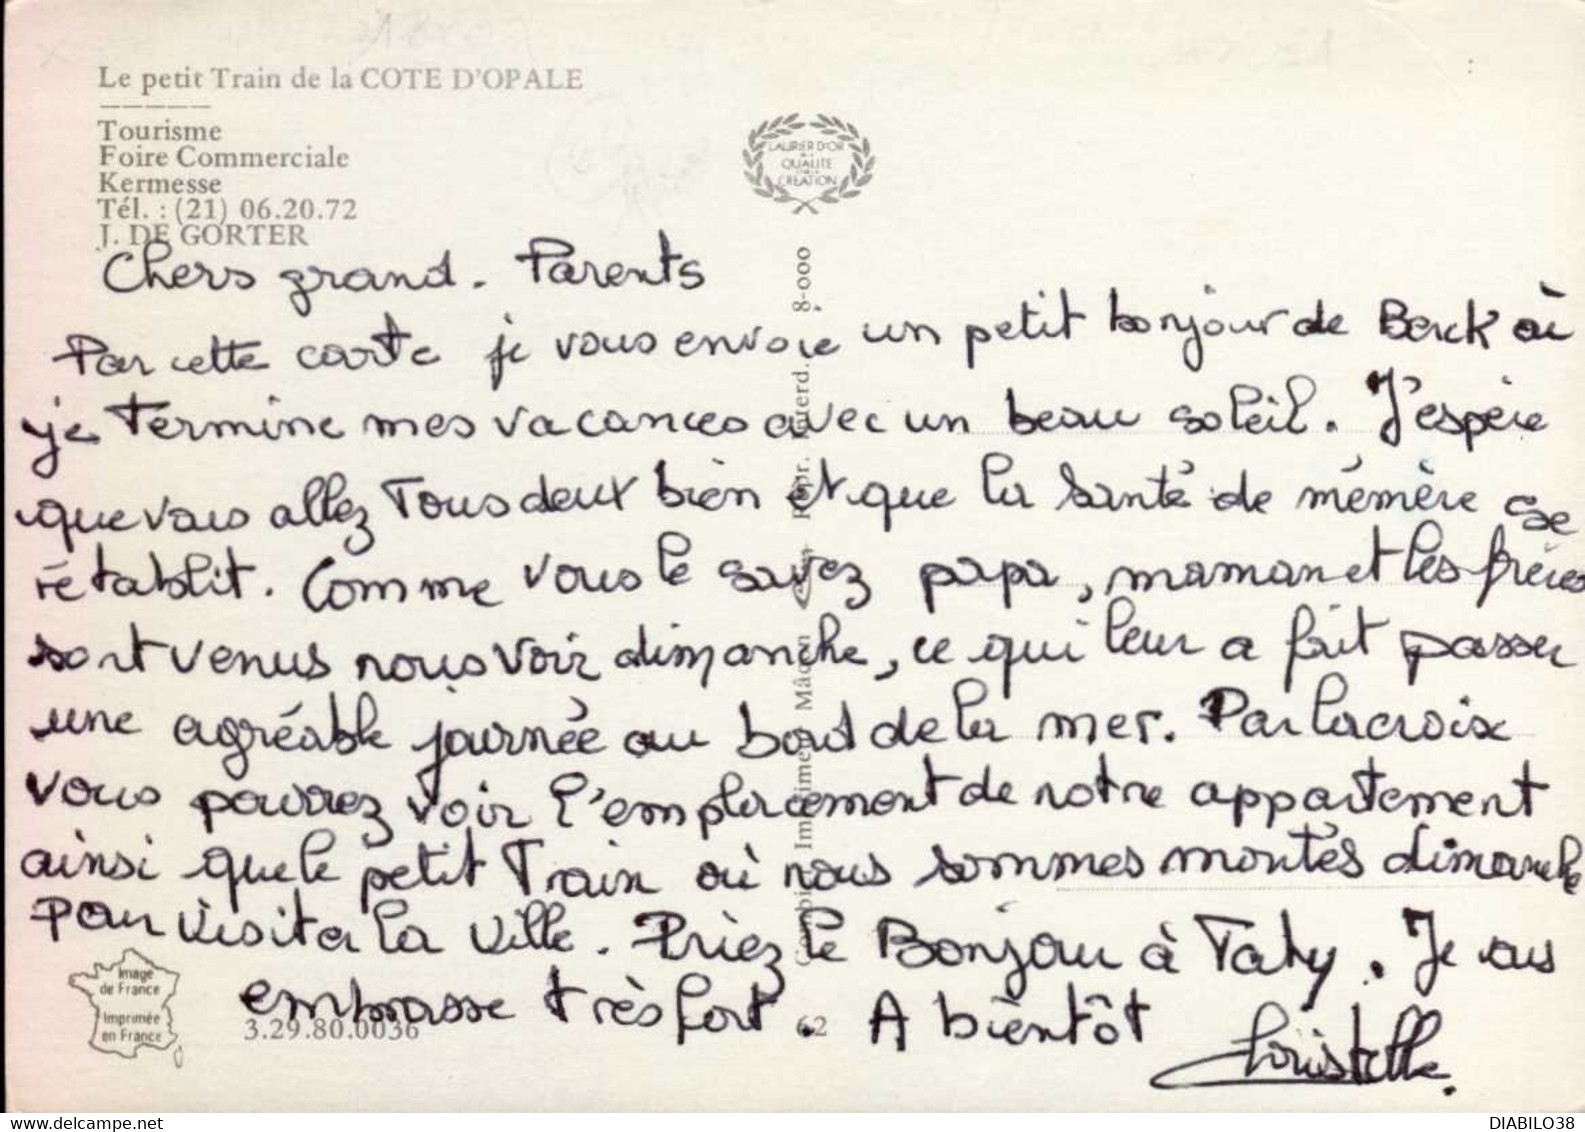 Le petit Train de la COTE D'OPALE
Tourisme
Foire Commerciale
Kermesse
Tél. : (21) 06.20.72
J. DE GORTER
LAURIER D'OR
QUALITE
CREATION
Chers grand. Parents
Par cette carte je vous envoie un petit bonjour de Berck où
je termine mes vacances avec un beau soleil. J'espère
que vous allez Tous deux bien et que la santé de mémère se
rétablit. Comme vous le savez papa, maman et les frères
sont venus nous voir dimanche, ce qui leur a fait passer
une agréable journée au bord de la mer. Par la croix
vous pourrez voir l'emplacement de notre appartement
ainsi que le petit Train où nous sommes montés dimanche
pour visiter la ville. Priez le Bonjour à Taty. Je vous
embrasse très fort. A bientôt
Christelle.
Image
de France
Imprimée
en France
3.29.80.0036
62
Imprimeur Mâcon Repr. 8-000
delcampe.net
DIABILO38